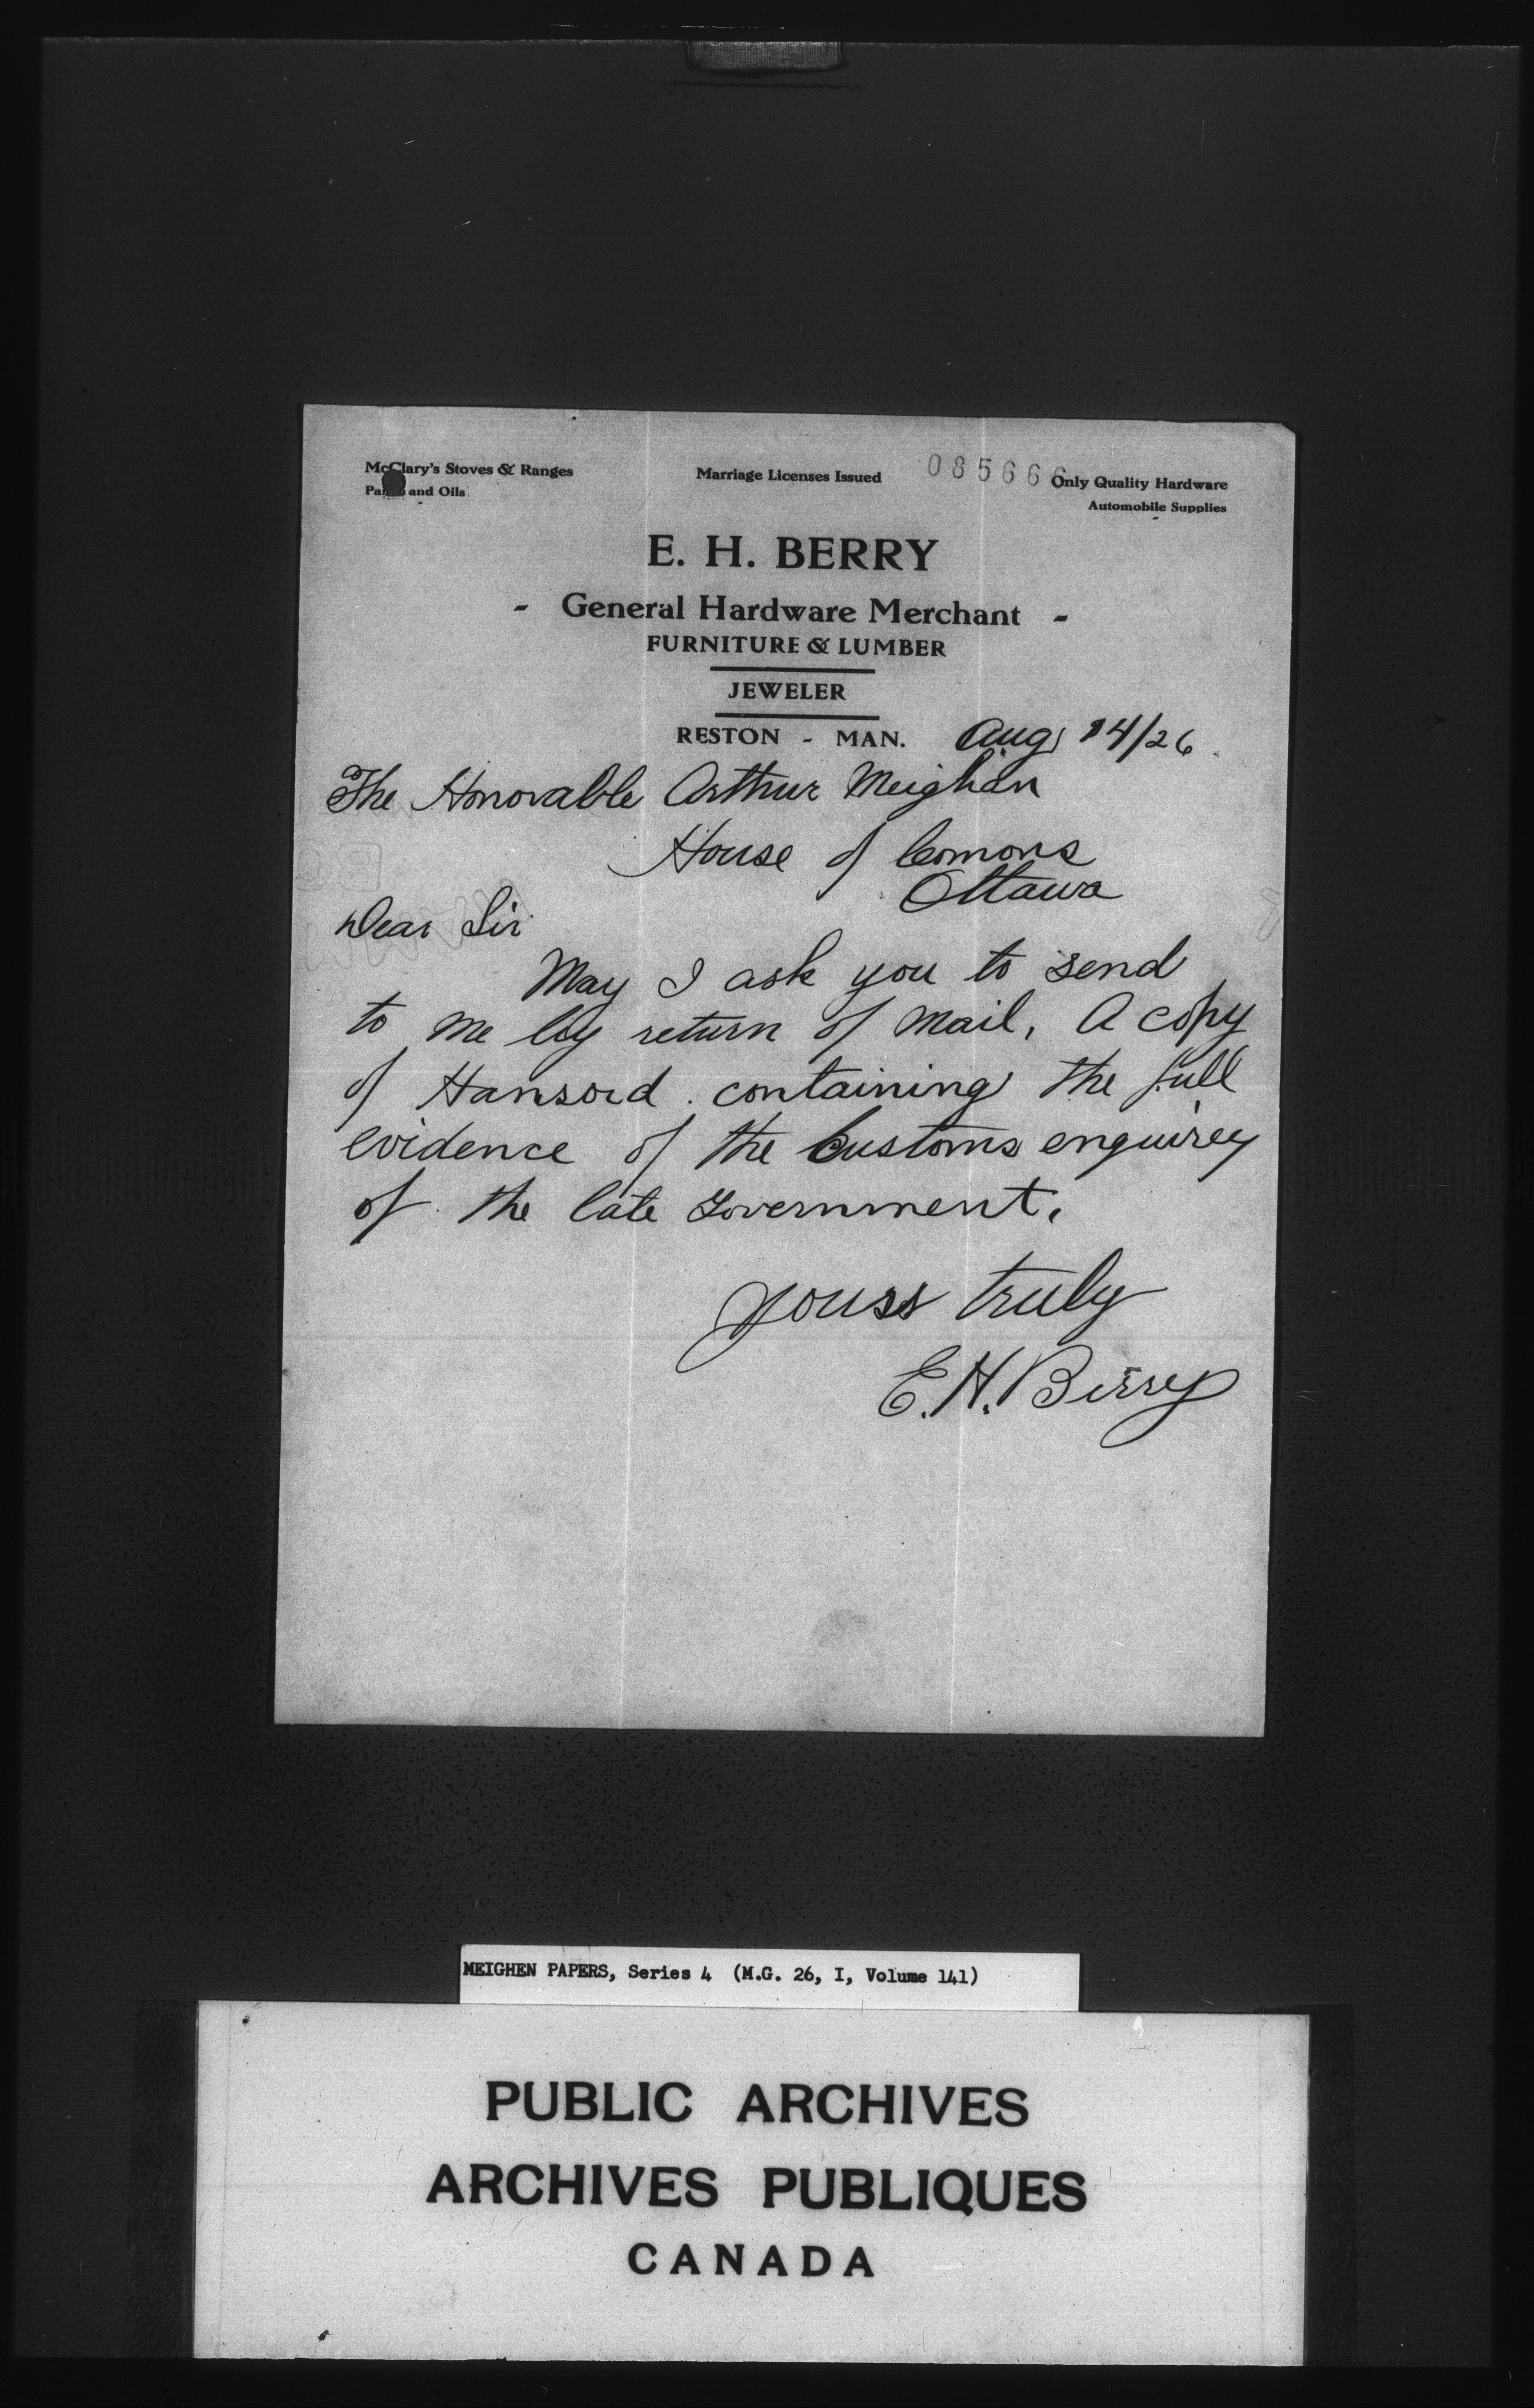 McClary's Stoves & Ranges
Marriage Licenses Issued
085666
Only Quality Hardware
and Oils
Automobile Supplies
E. H. BERRY
- General Hardware Merchant -
FURNITURE & LUMBER
JEWELER
RESTON - MAN. Aug 14/26.
The Honorable Arthur Meighan
House of Comons
Ottawa
Dear Sir
May I ask you to send
to me by return of mail, A copy
of Hansord. containing the full
evidence of the Customs enquirey
of the late Government.
yours truly
E. H. Berry
MEIGHEN PAPERS, Series 4 (M.G. 26, I, Volume 141)
PUBLIC ARCHIVES
ARCHIVES PUBLIQUES
CANADA